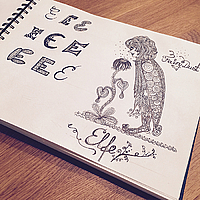 E E E
E E E
E E E E
Fairy Dust
Elfe